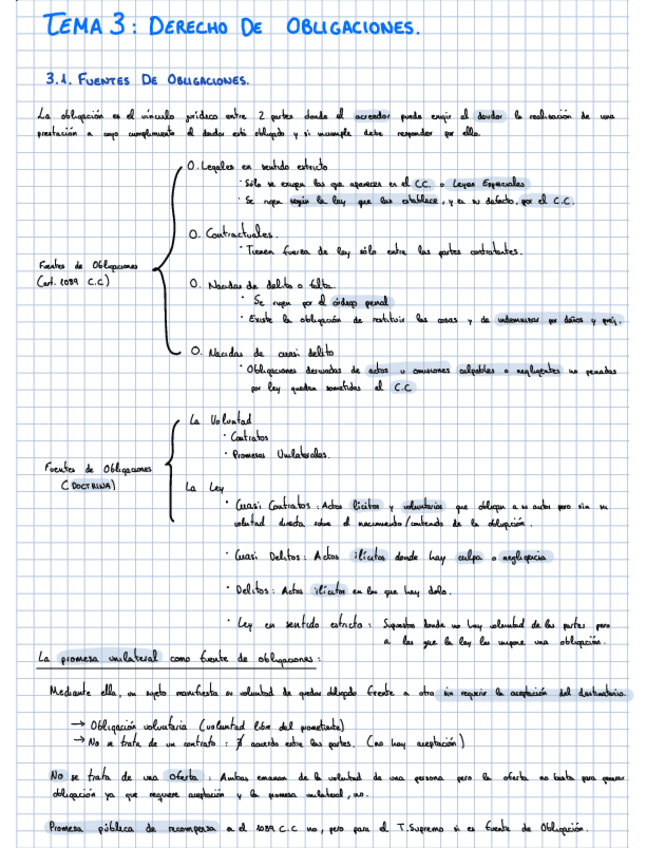 TEMA 3: DERECHO DE OBLIGACIONES.
3.1. FUENTES DE OBLIGACIONES.
La obligación es el vínculo jurídico entre 2 partes donde el acreedor puede exigir al deudor la realización de una
prestación a cuyo cumplimiento el deudor está obligado y si incumple debe responder por ello.
O. Legales en sentido estricto
· Sólo se exigen las que aparecen en el C.C. o Leyes Especiales
· Se rigen según la ley que las establece, y en su defecto, por el C.C.
O. Contractuales.
· Tienen fuerza de ley sólo entre las partes contratantes.
Fuentes de Obligaciones
(art. 1089 C.C)
O. Nacidas de delito o falta.
· Se rigen por el código penal
· Existe la obligación de restituir las cosas y de indemnizar por daños y perj.
O. Nacidas de cuasi delito
· Obligaciones derivadas de actos u omisiones culpables o negligentes no penadas
por ley quedan sometidas al C.C
La Voluntad
· Contratos
· Promesas Unilaterales.
Fuentes de Obligaciones
(DOCTRINA)
La Ley
· Cuasi Contratos: Actos lícitos y voluntarios que obligan a su autor pero sin su
voluntad directa sobre el nacimiento/contenido de la obligación.
· Cuasi Delitos: Actos ilícitos donde hay culpa o negligencia
· Delitos: Actos ilícitos en los que hay dolo.
· Ley en sentido estricto: Supuestos donde no hay voluntad de las partes pero
a las que la ley les impone una obligación.
La promesa unilateral como fuente de obligaciones:
Mediante ella, un sujeto manifiesta su voluntad de quedar obligado frente a otro sin requerir la aceptación del destinatario.
→ Obligación voluntaria (voluntad libre del prometiente)
→ No se trata de un contrato: ∄ acuerdo entre las partes. (no hay aceptación)
No se trata de una oferta: Ambas emanan de la voluntad de una persona pero la oferta no basta para generar
obligación ya que requiere aceptación y la promesa unilateral, no.
Promesa pública de recompensa a el 1089 C.C no, pero para el T.Supremo si es fuente de Obligación.